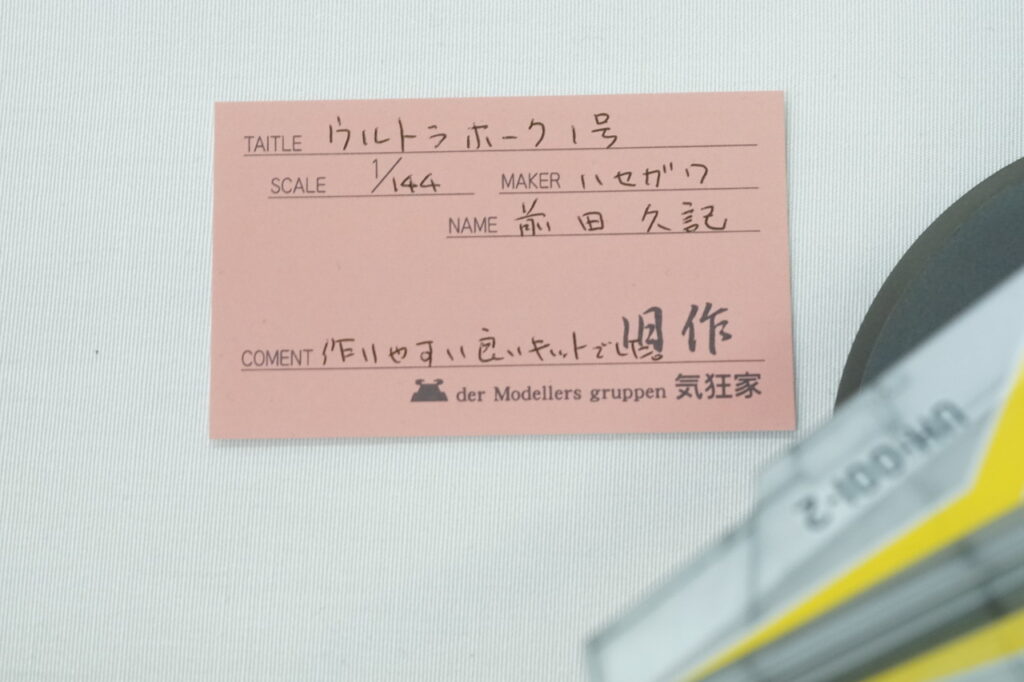 TAITLE ウルトラホーク1号
SCALE 1/144 MAKER ハセガワ
NAME 前田 久記
旧作
COMENT 作りやすい良いキットでした。
der Modellers gruppen 気狂家
UH-001-2